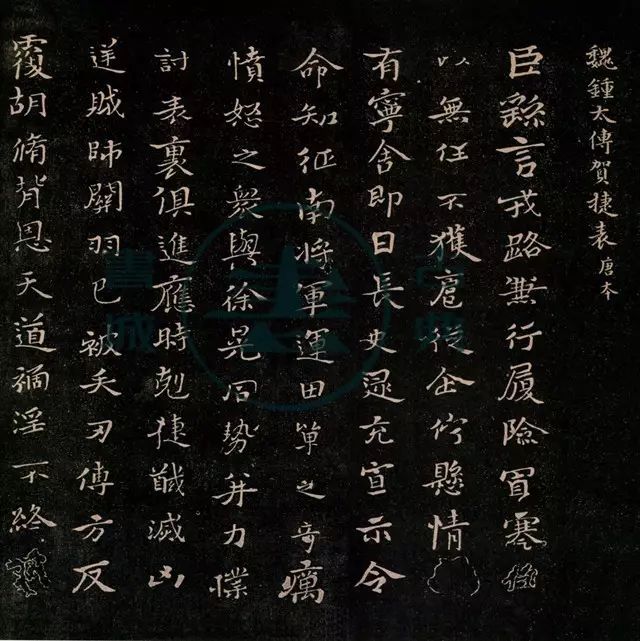 魏鍾太傅賀捷表 唐本
臣繇言戎路兼行履險冒寒
以無任不獲扈從企佇懸情
有寧舍即日長史逯充宣示令
命知征南將軍運田單之奇癘
憤怒之衆與徐晃同勢并力撲
討表裏俱進應時剋捷馘滅凶
逆賊帥關羽已被矢刃傅方反
覆胡脩背恩天道禍淫不終
書城